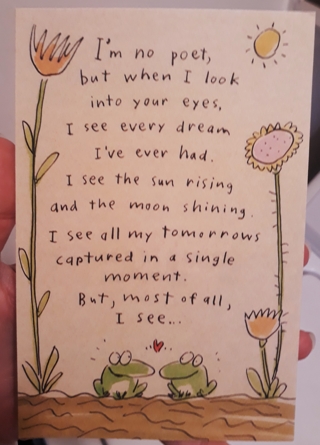 I'm no poet,
but when I look
into your eyes,
I see every dream
I've ever had.
I see the sun rising
and the moon shining.
I see all my tomorrows
captured in a single
moment.
But, most of all,
I see...